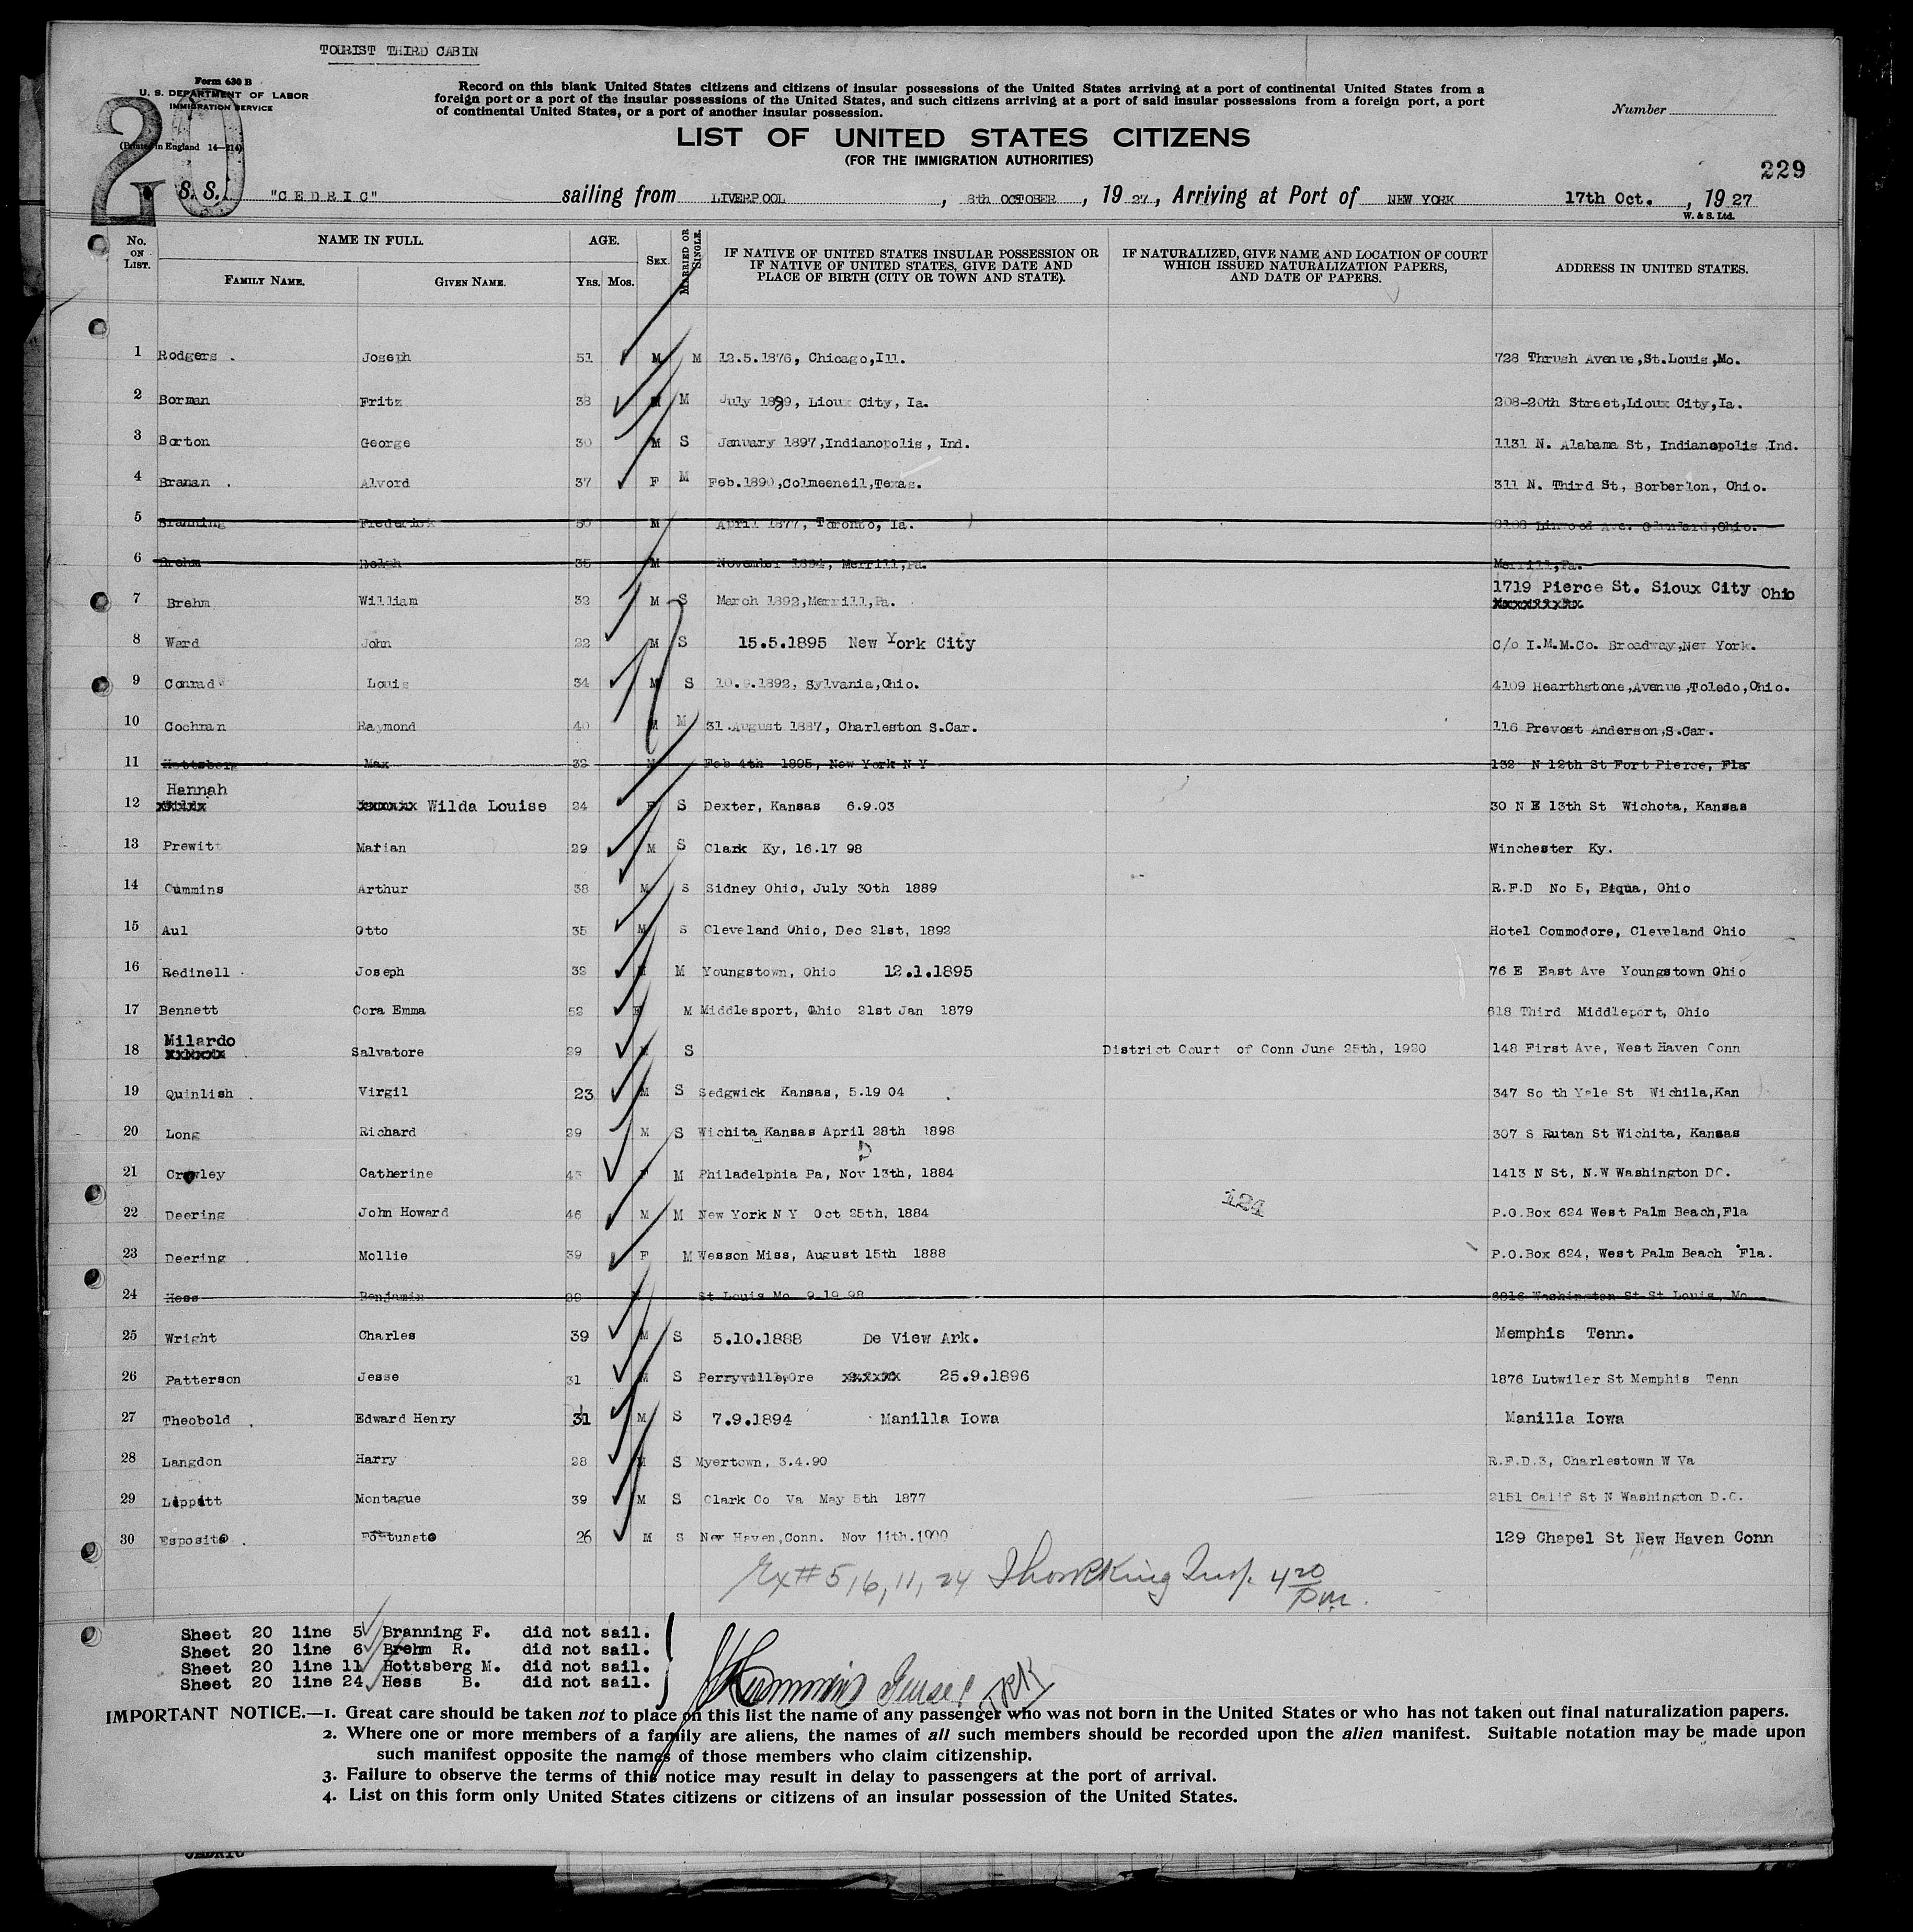 TOURIST THIRD CABIN
Form 630 B
U. S. DEPARTMENT OF LABOR
IMMIGRATION SERVICE
(Printed in England 14—214)
20
Record on this blank United States citizens and citizens of insular possessions of the United States arriving at a port of continental United States from a
foreign port or a port of the insular possessions of the United States, and such citizens arriving at a port of said insular possessions from a foreign port, a port
of continental United States, or a port of another insular possession.
Number
LIST OF UNITED STATES CITIZENS
(FOR THE IMMIGRATION AUTHORITIES)
229
S. S. "CEDRIC" sailing from LIVERPOOL, 8th OCTOBER, 1927, Arriving at Port of NEW YORK 17th Oct., 1927
W. & S. Ltd.
No. ON LIST. NAME IN FULL. FAMILY NAME. GIVEN NAME. AGE. YRS. MOS. SEX. MARRIED OR SINGLE. IF NATIVE OF UNITED STATES INSULAR POSSESSION OR IF NATIVE OF UNITED STATES, GIVE DATE AND PLACE OF BIRTH (CITY OR TOWN AND STATE). IF NATURALIZED, GIVE NAME AND LOCATION OF COURT WHICH ISSUED NATURALIZATION PAPERS, AND DATE OF PAPERS. ADDRESS IN UNITED STATES.
1 Rodgers . Joseph 51 M M 12.5.1876, Chicago,Ill. 728 Thrush Avenue,St.Louis,Mo.
2 Borman Fritz 38 M M July 1889, Lioux City, Ia. 208-20th Street,Lioux City,Ia.
3 Borton George 30 M S January 1897,Indianopolis, Ind. 1131 N. Alabama St, Indianapolis Ind.
4 Branan . Alvord 37 F M Feb.1890,Colmeeneil,Texas. 311 N. Third St, Borberlon, Ohio.
5 Branning Frederick 50 M April 1877, Toronto, Ia. Linwood Ave. Ohio.
6 Brehm Rolph 35 M November 1894, Merrill,Pa. Merrill,Pa.
7 Brehm William 32 M S March 1892,Merrill,Pa. 1719 Pierce St. Sioux City Ohio
8 Ward John 22 M S 15.5.1895 New York City C/o I.M.M.Co. Broadway,New York.
9 Conrad Louis 34 M S 10.9.1892, Sylvania,Ohio. 4109 Hearthstone,Avenue,Toledo,Ohio.
10 Cochran Raymond 40 M M 31 August 1887, Charleston S.Car. 116 Prevost Anderson,S.Car.
11 Hottsberg Max 32 M Feb 4th 1895, New York N Y 132 N 12th St Fort Pierce, Fla
12 Hannah Wilda Louise 24 F S Dexter, Kansas 6.9.03 30 N E 13th St Wichota, Kansas
13 Prewitt Marian 29 M S Clark Ky, 16.17 98 Winchester Ky.
14 Cummins Arthur 38 M S Sidney Ohio, July 30th 1889 R.F.D No 5, Piqua, Ohio
15 Aul Otto 35 M S Cleveland Ohio, Dec 21st, 1892 Hotel Commodore, Cleveland Ohio
16 Redinell . Joseph 32 M M Youngstown, Ohio 12.1.1895 76 E East Ave Youngstown Ohio
17 Bennett Cora Emma 52 F M Middlesport, Ohio 21st Jan 1879 618 Third Middleport, Ohio
18 Milardo Salvatore 29 M S District Court of Conn June 25th, 1920 148 First Ave, West Haven Conn
19 Quinlish . Virgil 23 M S Sedgwick Kansas, 5.19 04 347 So th Yale St Wichila,Kan
20 Long Richard 29 M S Wichita Kansas April 28th 1898 307 S Rutan St Wichita, Kansas
21 Crowley Catherine 43 F M Philadelphia Pa, Nov 13th, 1884 1413 N St, N.W Washington DC.
22 Deering John Howard 46 M M New York N Y Oct 25th, 1884 P.O.Box 624 West Palm Beach,Fla
124
23 Deering . Mollie 39 F M Wesson Miss, August 15th 1888 P.O.Box 624, West Palm Beach Fla.
24 Hess Benjamin 29 St Louis Mo 9.19 98 6816 Washington St St Louis, Mo
25 Wright Charles 39 M S 5.10.1888 De View Ark. Memphis Tenn.
26 Patterson Jesse 31 M S Perryville,Ore 25.9.1896 1876 Lutwiler St Memphis Tenn
27 Theobold . Edward Henry 31 M S 7.9.1894 Manilla Iowa Manilla Iowa
28 Langdon Harry 28 M S Myertown, 3.4.90 R.F.D.3, Charlestown W Va
29 Lippitt Montague 39 M S Clark Co Va May 5th 1877 2151 Calif St N Washington D.C.
30 Esposito . Fortunato 26 M S New Haven,Conn. Nov 11th.1900 129 Chapel St New Haven Conn
Ex# 5, 6, 11, 24 King Insp. 4 20 pm.
Sheet 20 line 5 Branning F. did not sail.
Sheet 20 line 6 Brehm R. did not sail.
Sheet 20 line 11 Hottsberg M. did not sail.
Sheet 20 line 24 Hess B. did not sail.
IMPORTANT NOTICE.—1. Great care should be taken not to place on this list the name of any passenger who was not born in the United States or who has not taken out final naturalization papers.
2. Where one or more members of a family are aliens, the names of all such members should be recorded upon the alien manifest. Suitable notation may be made upon
such manifest opposite the names of those members who claim citizenship.
3. Failure to observe the terms of this notice may result in delay to passengers at the port of arrival.
4. List on this form only United States citizens or citizens of an insular possession of the United States.
CEDRIC